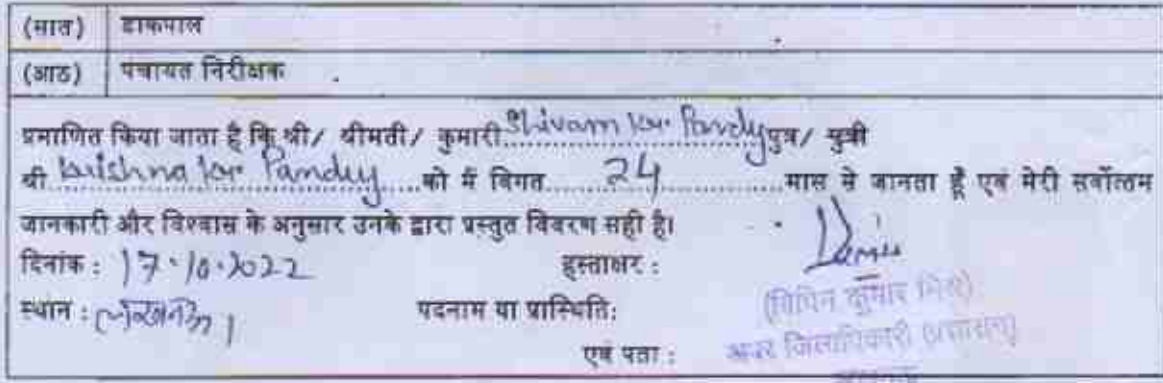 (सात) डाकपाल
(आठ) पंचायत निरीक्षक
प्रमाणित किया जाता है कि श्री/ श्रीमती/ कुमारी Shivam kr. Pandey पुत्र/ पुत्री
श्री krishna kr Pandey को मैं विगत 24 मास से जानता हूँ एवं मेरी सर्वोत्तम
जानकारी और विश्वास के अनुसार उनके द्वारा प्रस्तुत विवरण सही है।
दिनांक : 17.10.2022 हस्ताक्षर :
स्थान : लखनऊ। पदनाम या प्रास्थिति: (विपिन कुमार मिश्र)
एवं पता : अपर जिलाधिकारी (प्रशासन)